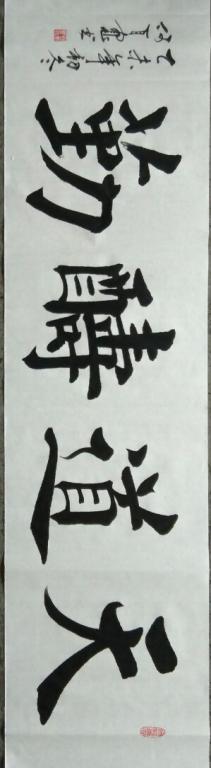 天道醻勤
乙未年初冬